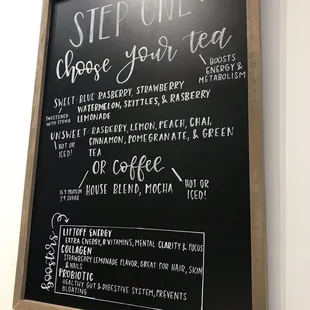 STEP ONE:
Choose your tea
BOOSTS
ENERGY &
METABOLISM
SWEET: BLUE RASBERRY, STRAWBERRY
WATERMELON, SKITTLES, & RASBERRY
LEMONADE
SWEETENED
WITH STEVIA
UNSWEET: RASBERRY, LEMON, PEACH, CHAI,
CINNAMON, POMEGRANATE, & GREEN
TEA
HOT OR
ICED!
OR coffee
HOUSE BLEND, MOCHA
15 g PROTEIN
2 g SUGAR
HOT OR
ICED!
boosters
LIFTOFF ENERGY
EXTRA ENERGY, B VITAMINS, MENTAL CLARITY & FOCUS
COLLAGEN
STRAWBERRY LEMONADE FLAVOR, GREAT FOR HAIR, SKIN
& NAILS
PROBIOTIC
HEALTHY GUT & DIGESTIVE SYSTEM, PREVENTS
BLOATING